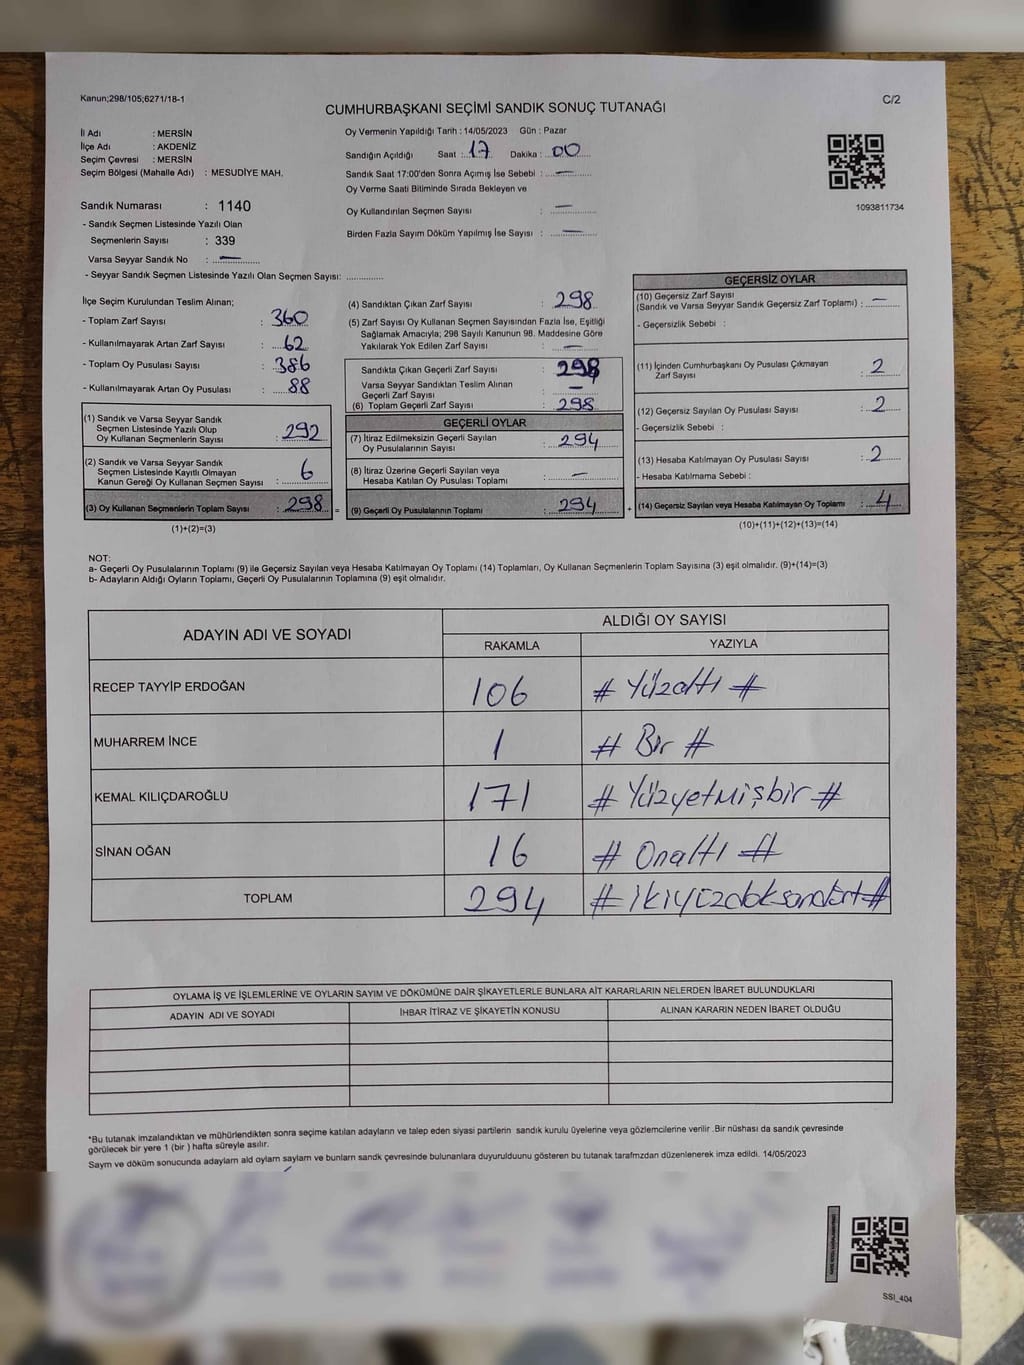 Kanun;298/105;6271/18-1
C/2
CUMHURBAŞKANI SEÇİMİ SANDIK SONUÇ TUTANAĞI
İl Adı : MERSİN
İlçe Adı : AKDENİZ
Seçim Çevresi : MERSİN
Seçim Bölgesi (Mahalle Adı) : MESUDİYE MAH.
Sandık Numarası : 1140
- Sandık Seçmen Listesinde Yazılı Olan
Seçmenlerin Sayısı : 339
Varsa Seyyar Sandık No : —
- Seyyar Sandık Seçmen Listesinde Yazılı Olan Seçmen Sayısı: ..............
Oy Vermenin Yapıldığı Tarih : 14/05/2023 Gün : Pazar
Sandığın Açıldığı Saat : 17 Dakika : 00
Sandık Saat 17:00'den Sonra Açımış İse Sebebi : —
Oy Verme Saati Bitiminde Sırada Bekleyen ve
Oy Kullandırılan Seçmen Sayısı : —
Birden Fazla Sayım Döküm Yapılmış İse Sayısı : —
1093811734
İlçe Seçim Kurulundan Teslim Alınan;
- Toplam Zarf Sayısı : 360
- Kullanılmayarak Artan Zarf Sayısı : 62
- Toplam Oy Pusulası Sayısı : 386
- Kullanılmayarak Artan Oy Pusulası : 88
(1) Sandık ve Varsa Seyyar Sandık
Seçmen Listesinde Yazılı Olup
Oy Kullanan Seçmenlerin Sayısı : 292
(2) Sandık ve Varsa Seyyar Sandık
Seçmen Listesinde Kayıtlı Olmayan
Kanun Gereği Oy Kullanan Seçmen Sayısı : 6
(3) Oy Kullanan Seçmenlerin Toplam Sayısı : 298
(1)+(2)=(3)
(4) Sandıktan Çıkan Zarf Sayısı : 298
(5) Zarf Sayısı Oy Kullanan Seçmen Sayısından Fazla İse, Eşitliği
Sağlamak Amacıyla; 298 Sayılı Kanunun 98. Maddesine Göre
Yakılarak Yok Edilen Zarf Sayısı : —
Sandıkta Çıkan Geçerli Zarf Sayısı : 298
Varsa Seyyar Sandıktan Teslim Alınan
Geçerli Zarf Sayısı : —
(6) Toplam Geçerli Zarf Sayısı : 298
GEÇERLİ OYLAR
(7) İtiraz Edilmeksizin Geçerli Sayılan
Oy Pusulalarının Sayısı : 294
(8) İtiraz Üzerine Geçerli Sayılan veya
Hesaba Katılan Oy Pusulası Toplamı : —
= (9) Geçerli Oy Pusulalarının Toplamı : 294
GEÇERSİZ OYLAR
(10) Geçersiz Zarf Sayısı
(Sandık ve Varsa Seyyar Sandık Geçersiz Zarf Toplamı) : —
- Geçersizlik Sebebi :
(11) İçinden Cumhurbaşkanı Oy Pusulası Çıkmayan
Zarf Sayısı : 2
(12) Geçersiz Sayılan Oy Pusulası Sayısı : 2
- Geçersizlik Sebebi :
(13) Hesaba Katılmayan Oy Pusulası Sayısı : 2
- Hesaba Katılmama Sebebi :
+ (14) Geçersiz Sayılan veya Hesaba Katılmayan Oy Toplamı : 4
(10)+(11)+(12)+(13)=(14)
NOT:
a- Geçerli Oy Pusulalarının Toplamı (9) ile Geçersiz Sayılan veya Hesaba Katılmayan Oy Toplamı (14) Toplamları, Oy Kullanan Seçmenlerin Toplam Sayısına (3) eşit olmalıdır. (9)+(14)=(3)
b- Adayların Aldığı Oyların Toplamı, Geçerli Oy Pusulalarının Toplamına (9) eşit olmalıdır.
ADAYIN ADI VE SOYADI ALDIĞI OY SAYISI
RAKAMLA YAZIYLA
RECEP TAYYİP ERDOĞAN 106 # Yüzaltı #
MUHARREM İNCE 1 # Bir #
KEMAL KILIÇDAROĞLU 171 # Yüzyetmişbir #
SİNAN OĞAN 16 # Onaltı #
TOPLAM 294 # ikiyüzdoksandört #
OYLAMA İŞ VE İŞLEMLERİNE VE OYLARIN SAYIM VE DÖKÜMÜNE DAİR ŞİKAYETLERLE BUNLARA AİT KARARLARIN NELERDEN İBARET BULUNDUKLARI
ADAYIN ADI VE SOYADI İHBAR İTİRAZ VE ŞİKAYETİN KONUSU ALINAN KARARIN NEDEN İBARET OLDUĞU
*Bu tutanak imzalandıktan ve mühürlendikten sonra seçime katılan adayların ve talep eden siyasi partilerin sandık kurulu üyelerine veya gözlemcilerine verilir .Bir nüshası da sandık çevresinde
görülecek bir yere 1 (bir ) hafta süreyle asılır.
Saym ve döküm sonucunda adaylarn ald oylarn saylarn ve bunlarn sandk çevresinde bulunanlara duyurulduunu gösteren bu tutanak tarafmzdan düzenlenerek imza edildi. 14/05/2023
SSI_404